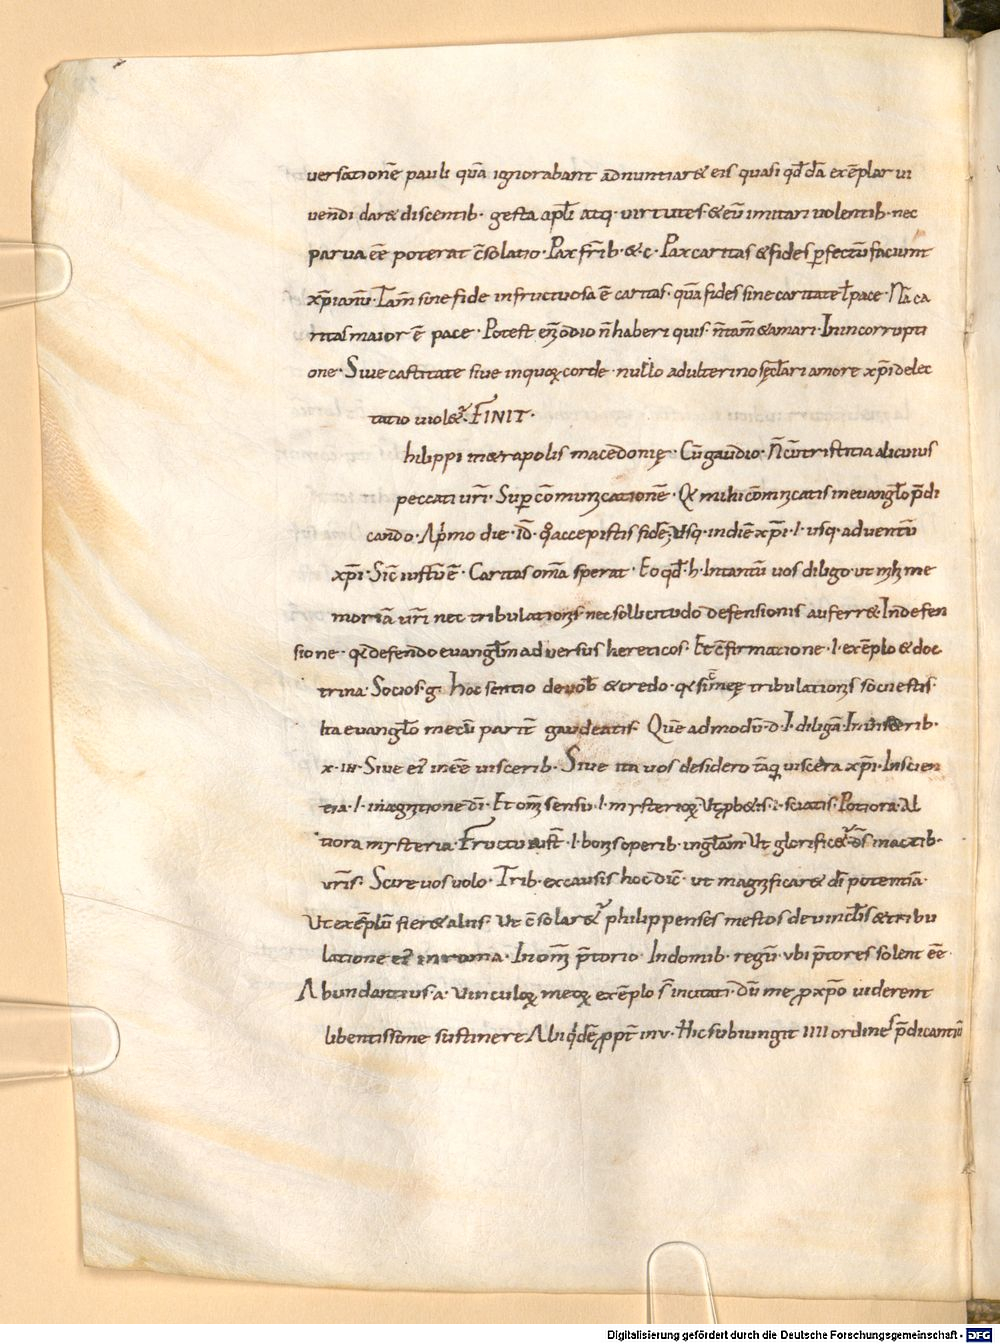 versationē pauli quā ignorabant adnuntiar& eis quasi qd̄dā exēplar vi
vendi dar& discentib· gesta apl̄i atq· virtutes & eū imitari volentib· nec
parva eē poterat c̄solatio· Pax fr̄ib· &·c· Pax caritas & fides ꝑfectū faciunt
xp̄ianū· Tam̄ sine fide infructuosa ē caritas· quā fides sine caritate ł pace· Nā ca
ritas maior ē pace· Potest eni odio n̄ haberi quis· n̄ tam̄ & amari· In incorrupti
one· Sive castitate sive in quoꝝ corde· nullo adulterino sęcl̄ari amore xp̄i delec
tatio viol&ur· FINIT·
hilippi metrapolis macedonię· Cū gaudio· N̄ cū tristitia alicuius
peccati vr̄i· Suꝑ cōmunicationē· Q& mihi cōmicatis in evangl̄o p̄di
cando· A p̄mo die· id̄· q̊ accepistis fidē· Usq· in diē xp̄i· ł· usq· adventū
xp̄i· Sic̄ iustū ē· Caritas om̄a sperat· Eo qd̄ h· In tantū vos diligo· ut mihi me
moriā vr̄i nec tribulationis nec sollicitudo defensionis auferr& In defen
sione· q̄ defendo evangl̄m adversus hereticos· Et c̄firmatione· ł· exēplo & doc
trina· Socios· g· hoc sentio de vob̄ & credo· q& sic̄ meę tribulationis socii estis·
Ita evangl̄o mecū parit̄ gaudeatis· Quē admodū· d· ł· diligā· In viscerib·
x· ih· Sive ei in eē viscerib· Sive ita vos desidero tāq viscera xp̄i· In scien
tia· ł· in agnitione dī· Et om̄i sensu· ł· mysterioꝝ Ut ꝓb&is· ł· sciatis· Potiora· Al
tiora mysteria· Fructu iust̄· ł· bonis operib· in gl̄am· Ut glorific&ur d̄s in actib·
vr̄is· Scire vos volo· Trib· ex causis hoc dic̄· ut magnificar& dī potentiā·
Ut exēplū fier& aliis· Ut c̄solar&ur philippenses mestos de vincl̄is & tribu
latione ei in roma· In om̄i p̄torio· In domib· regū· ubi p̄tores solent eē·
Abundantius· a· Vinculoꝝ meoꝝ exēplo s̄ invitati· dū me ꝓ xp̄o viderent
libentissime sustinere Alii q̇dē ꝓpt̄ inv· Hic subiungit IIII ordines p̄dicantiū
Digitalisierung gefördert durch die Deutsche Forschungsgemeinschaft - DFG